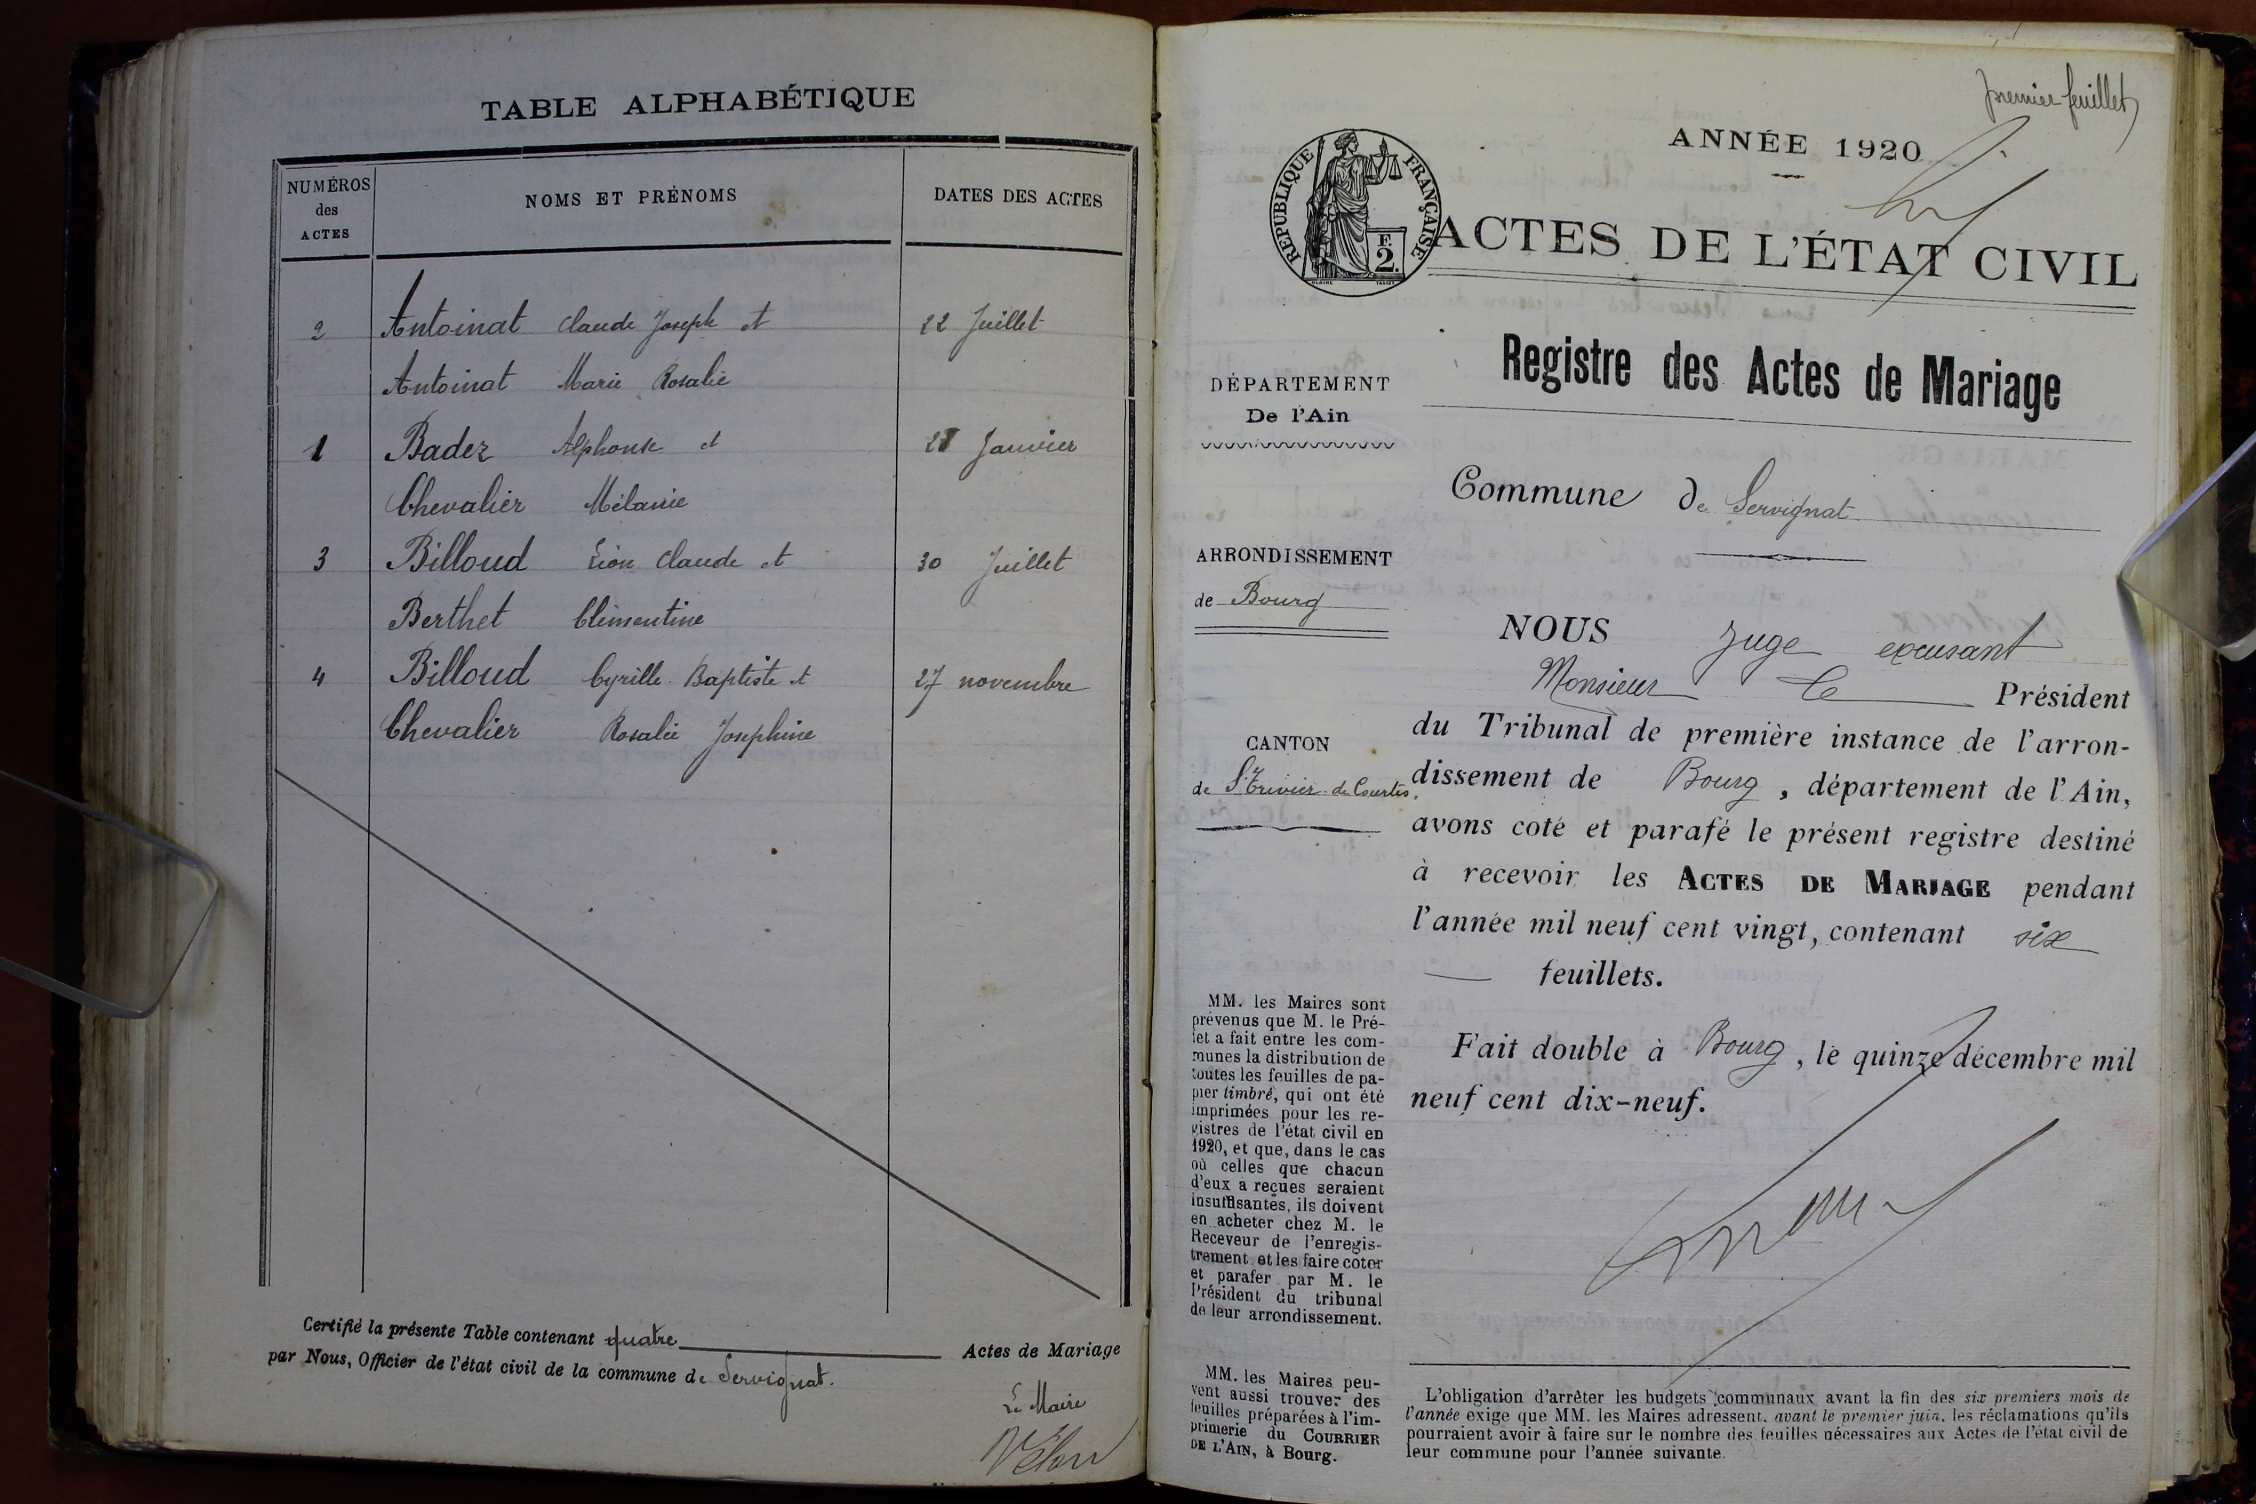 TABLE ALPHABÉTIQUE
NUMÉROS
des
ACTES
NOMS ET PRÉNOMS
DATES DES ACTES
2 Antoinat Claude Joseph et 22 Juillet
Antoinat Marie Rosalie
1 Badez Alphonse et Janvier
Chevalier Mélanie
3 Billoud Léon Claude et 30 Juillet
Berthet Clémentine
4 Billoud Cyrille Baptiste et 27 novembre
Chevalier Rosalie Josephine
Certifié la présente Table contenant quatre Actes de Mariage
par Nous, Officier de l'état civil de la commune de Servignat.
Le Maire
premier feuillet
ANNÉE 1920
RÉPUBLIQUE FRANÇAISE
F.
2.
ACTES DE L'ÉTAT CIVIL
Registre des Actes de Mariage
DÉPARTEMENT
De l'Ain
Commune de Servignat
ARRONDISSEMENT
de Bourg
CANTON
de St Trivier de Courtes
NOUS Juge excusant
Monsieur le Président
du Tribunal de première instance de l'arron-
dissement de Bourg, département de l'Ain,
avons coté et parafé le présent registre destiné
à recevoir les ACTES DE MARIAGE pendant
l'année mil neuf cent vingt, contenant six
feuillets.
Fait double à Bourg, le quinze décembre mil
neuf cent dix-neuf.
MM. les Maires sont
prévenus que M. le Pré-
fet a fait entre les com-
munes la distribution de
toutes les feuilles de pa-
pier timbré, qui ont été
imprimées pour les re-
gistres de l'état civil en
1920, et que, dans le cas
où celles que chacun
d'eux a reçues seraient
insuffisantes, ils doivent
en acheter chez M. le
Receveur de l'enregis-
trement et les faire coter
et parafer par M. le
Président du tribunal
de leur arrondissement.
MM. les Maires peu-
vent aussi trouver des
feuilles préparées à l'im-
primerie du COURRIER
DE L'AIN, à Bourg.
L'obligation d'arrêter les budgets communaux avant la fin des six premiers mois de
l'année exige que MM. les Maires adressent, avant le premier juin, les réclamations qu'ils
pourraient avoir à faire sur le nombre des feuilles nécessaires aux Actes de l'état civil de
leur commune pour l'année suivante.